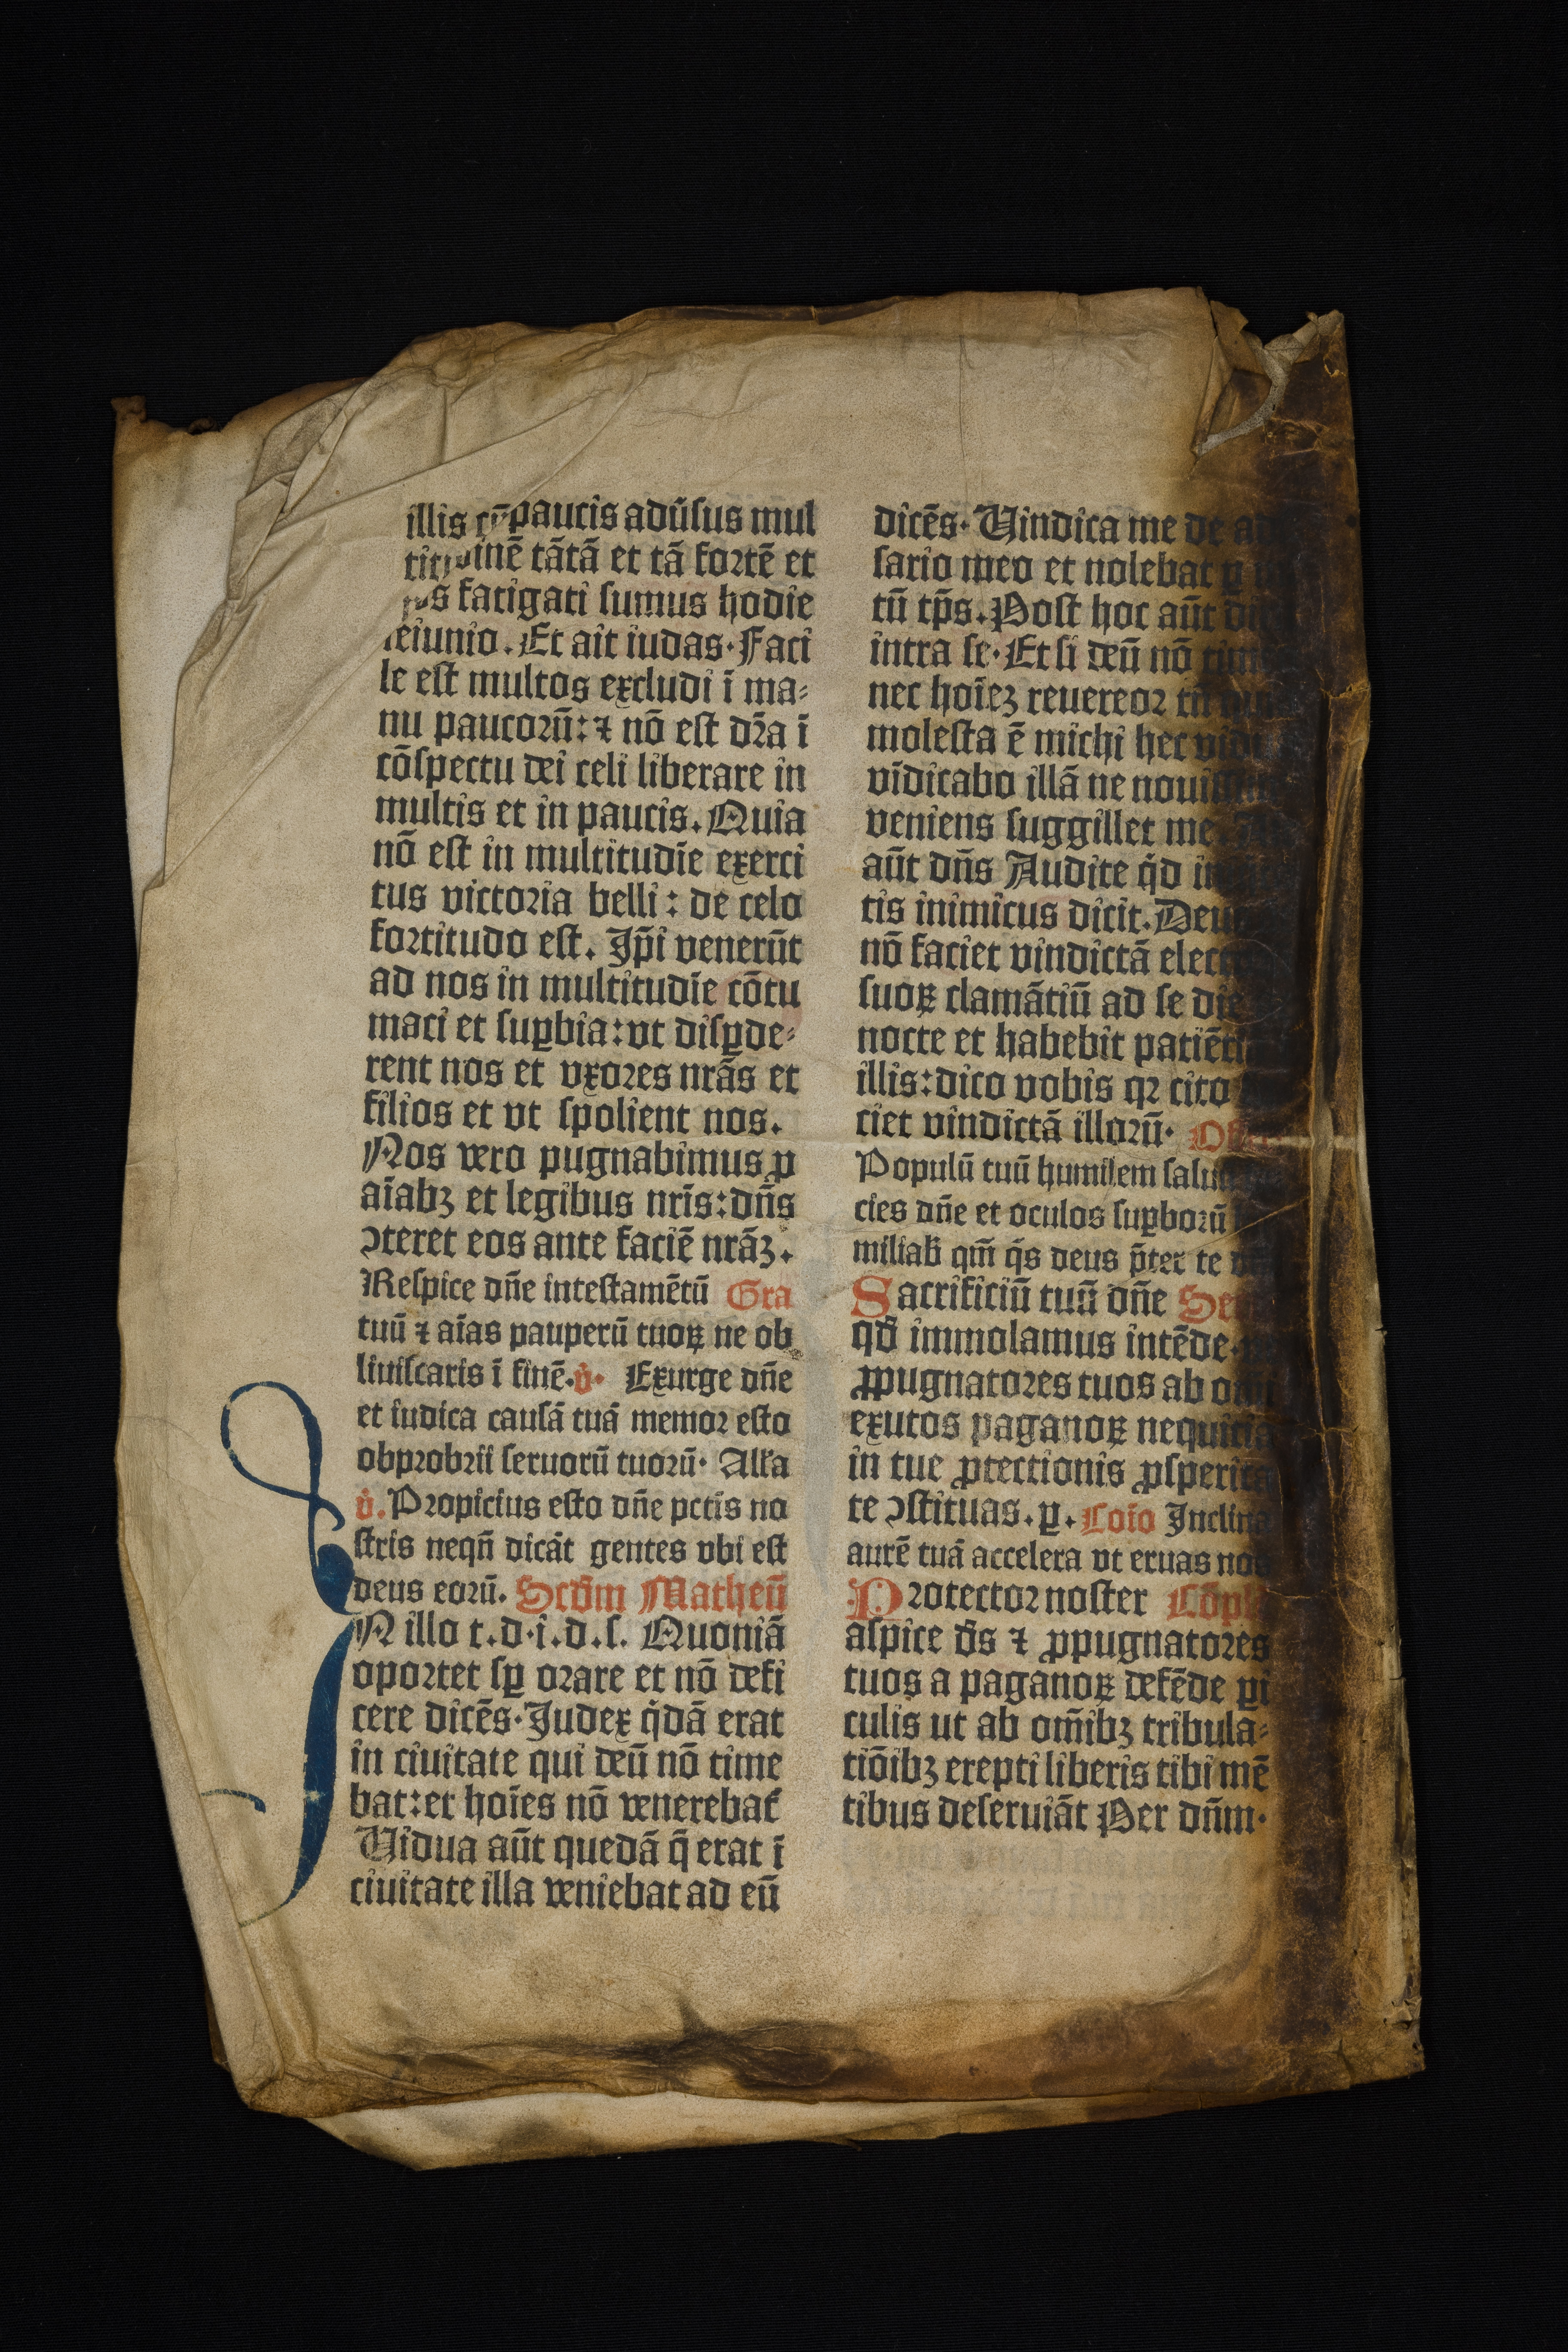 illis cū paucis adūsus mul
inē tātā et tā fortē et
fatigati sumus hodie
ieiunio. Et ait iudas· Faci
le est multos excludi ī ma⸗
nu paucorū: ⁊ nō est dr̄a ī
cōspectu dei celi liberare in
multis et in paucis. Quia
nō est in multitudīe exerci
tus victoria belli: de celo
fortitudo est. Ip̄i venerūt
ad nos in multitudīe cōtu
maci et suꝑbia: vt disꝑde⸗
rent nos et vxores nrās et
filios et vt spolient nos.
Nos vero pugnabimus ꝓ
aīabꝫ et legibus nrīs: dn̄s
ↄteret eos ante faciē nrāꝫ.
Respice dn̄e in testamētū Gra
tuū ⁊ aīas pauperū tuoꝝ ne ob
liuiscaris ī finē. v̇· Exurge dn̄e
et iudica causā tuā memor esto
obprobrii seruorū tuorū· Alla
v̇. Propicius esto dn̄e pctis no
stris neqn̄ dicāt gentes vbi est
deus eorū. Scdm̄ Matheū
IN illo t. d. i. d. s. Quoniā
oportet sꝑ orare et nō defi
cere dicēs· Judex q̇dā erat
in ciuitate qui deū nō time
bat: et hoīes nō venerebat᷑
Vidua aūt quedā q̄ erat ī
ciuitate illa veniebat ad eū
dicēs· Vindica me de ad
sario meo et nolebat ꝑ
tū tp̄s. Post hoc aūt
intra se· Et si deū nō tim
nec hoīeꝫ reuereor tn̄
molesta ē michi hec
vīdicabo illā ne noui
veniens suggillet me.
aūt dn̄s Audite q̇d
tis inimicus dicit. Deus
nō faciet vindictā elect
suoꝝ clamātiū ad se die
nocte et habebit patiēt
illis: dico vobis qꝛ cito
ciet vindictā illorū· Off
Populū tuū humilem
cies dn̄e et oculos suꝑborū
miliab̄ qm̄ q̇s deus p̄ter te
Sacrificiū tuū dn̄e Secr
qd̄ immolamus intēde.
ꝓpugnatores tuos ab
exutos paganoꝝ nequitia
in tue ꝓtectionis ꝓsperita
te ↄstituas. ꝑ. Coīo Inclina
aurē tuā accelera vt eruas nos
Protector noster Cōpl
aspice ds̄ ⁊ ꝓpugnatores
tuos a paganoꝝ defēde ꝑi
culis ut ab om̄ibꝫ tribula⸗
tiōibꝫ erepti liberis tibi mē
tibus deseruiāt Per dn̄m·